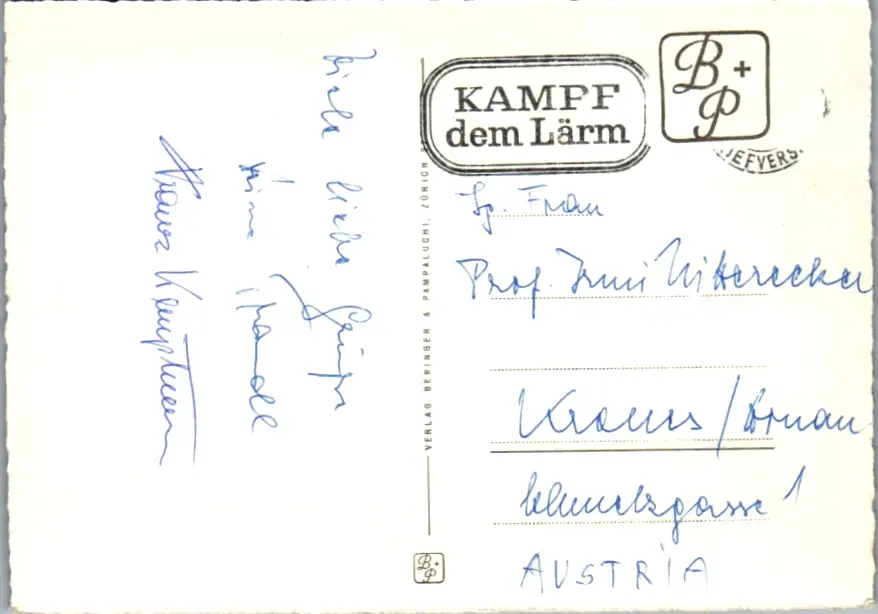 Viele liebe Grüße
KAMPF
dem Lärm
B+P
IEFVERS.
VERLAG BERINGER & PAMPALUCHI, ZÜRICH
Sg. Frau
Prof. Irmi Mitterecker
Krems / Donau
Schmelzgasse 1
AUSTRIA
B+P